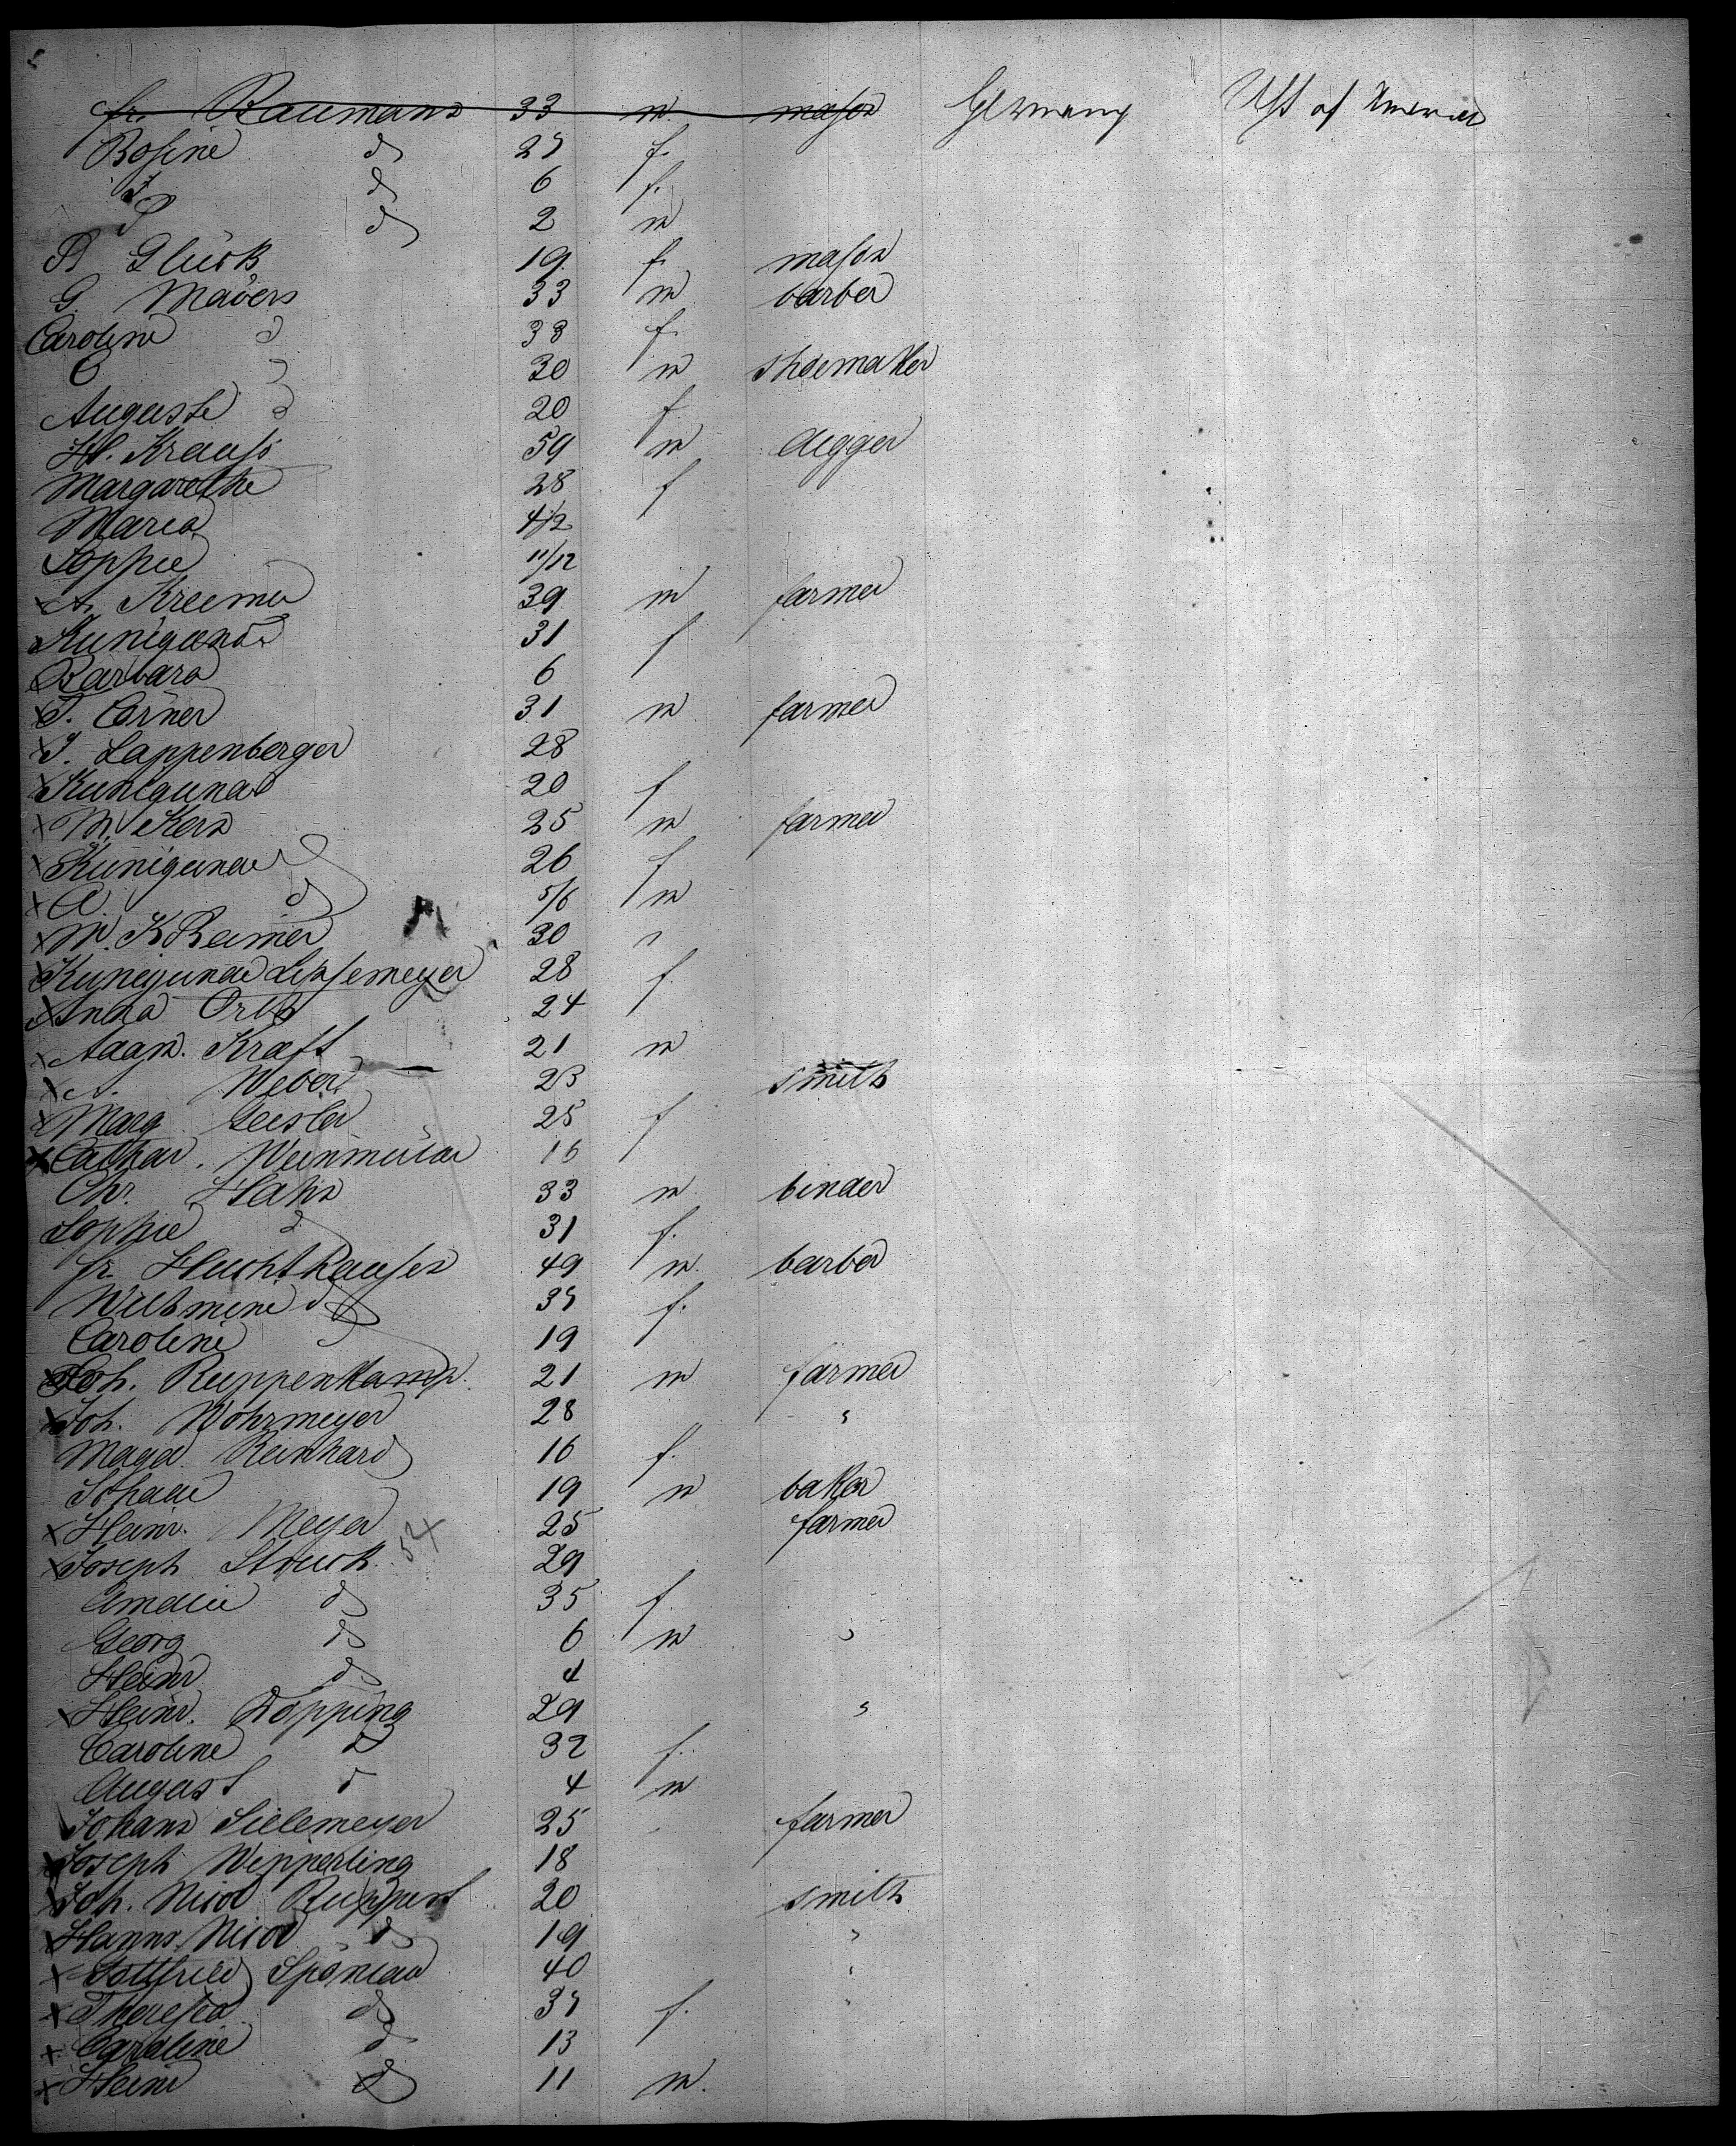 fr. Baumann 33 m. mason Germany USt of America
Rosine d 27 f.
F d 6 f.
P d 2 m
B Glück 19 f. mason
G. Mävers 33 m barber
Caroline d 38 f.
C d 30 m shoemaker
Auguste d 20 f
H. Krauss 59 m digger
Margarethe 28 f
Maria 4/12
Sophie 11/12
A. Kreemer 39 m farmer
Kunigunde 31 f
Barbara 6
J. Cörner 31 m farmer
J. Lappenberger 28
Kunigunde 20 f
M. Kern 25 m farmer
Kunigunde d 26 f
A d 5/6 m
M. Kraemer 30
Kunigunde 28 f.
Anna Orth 24 f
Adam. Kraft 21 m
A. Weber 23 smith
Marg Geisler 25 f
Cathar. 16 f
Chr. Hahn 33 m binder
Sophie d 31 f.
fr. Huchthausen 49 m. barber
Wilhmine d 37 f.
Caroline d 19
Joh. Ruppenkamp. 21 m farmer
Joh. Wöhrmeyer 28 "
Magd. Reinhard 16 f.
19 m baker
Heinr. Meyer 25 farmer
Joseph Struck. 54 29
Amalie d 35 f "
Georg d 6 m "
Heinr d 4
Heinr. Döpping 29 "
Caroline d 32 f.
August d 4 m
Johann Sielemeyer 25 farmer
Joseph Wepperling 18
Joh. Nicol Ruppert 20 smith
Hanns Nicol d 19 "
Gottfried 40 "
Theresia d 37 f. "
Caroline d 13
Heinr d 11 m.